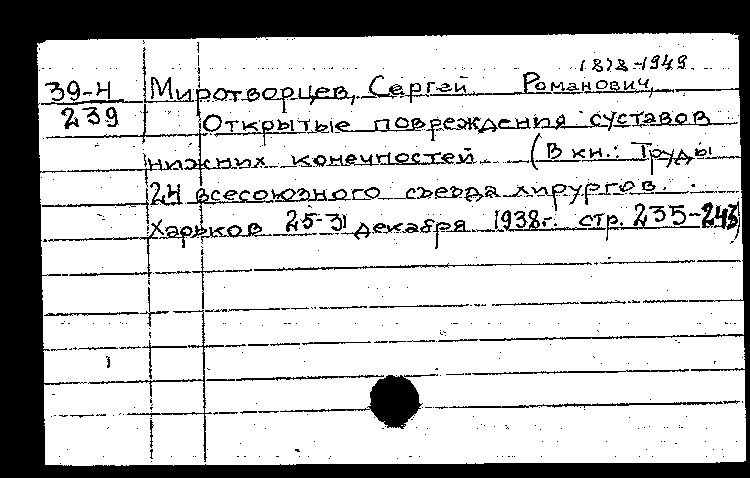 1878-1949.
39-4 Миротворцев, Сергей Романович,
239 Открытые повреждения суставов
нижних конечностей. (В кн.: Труды
24 всесоюзного съезда хирургов.
Харьков 25-31 декабря 1938г. стр. 235-243)